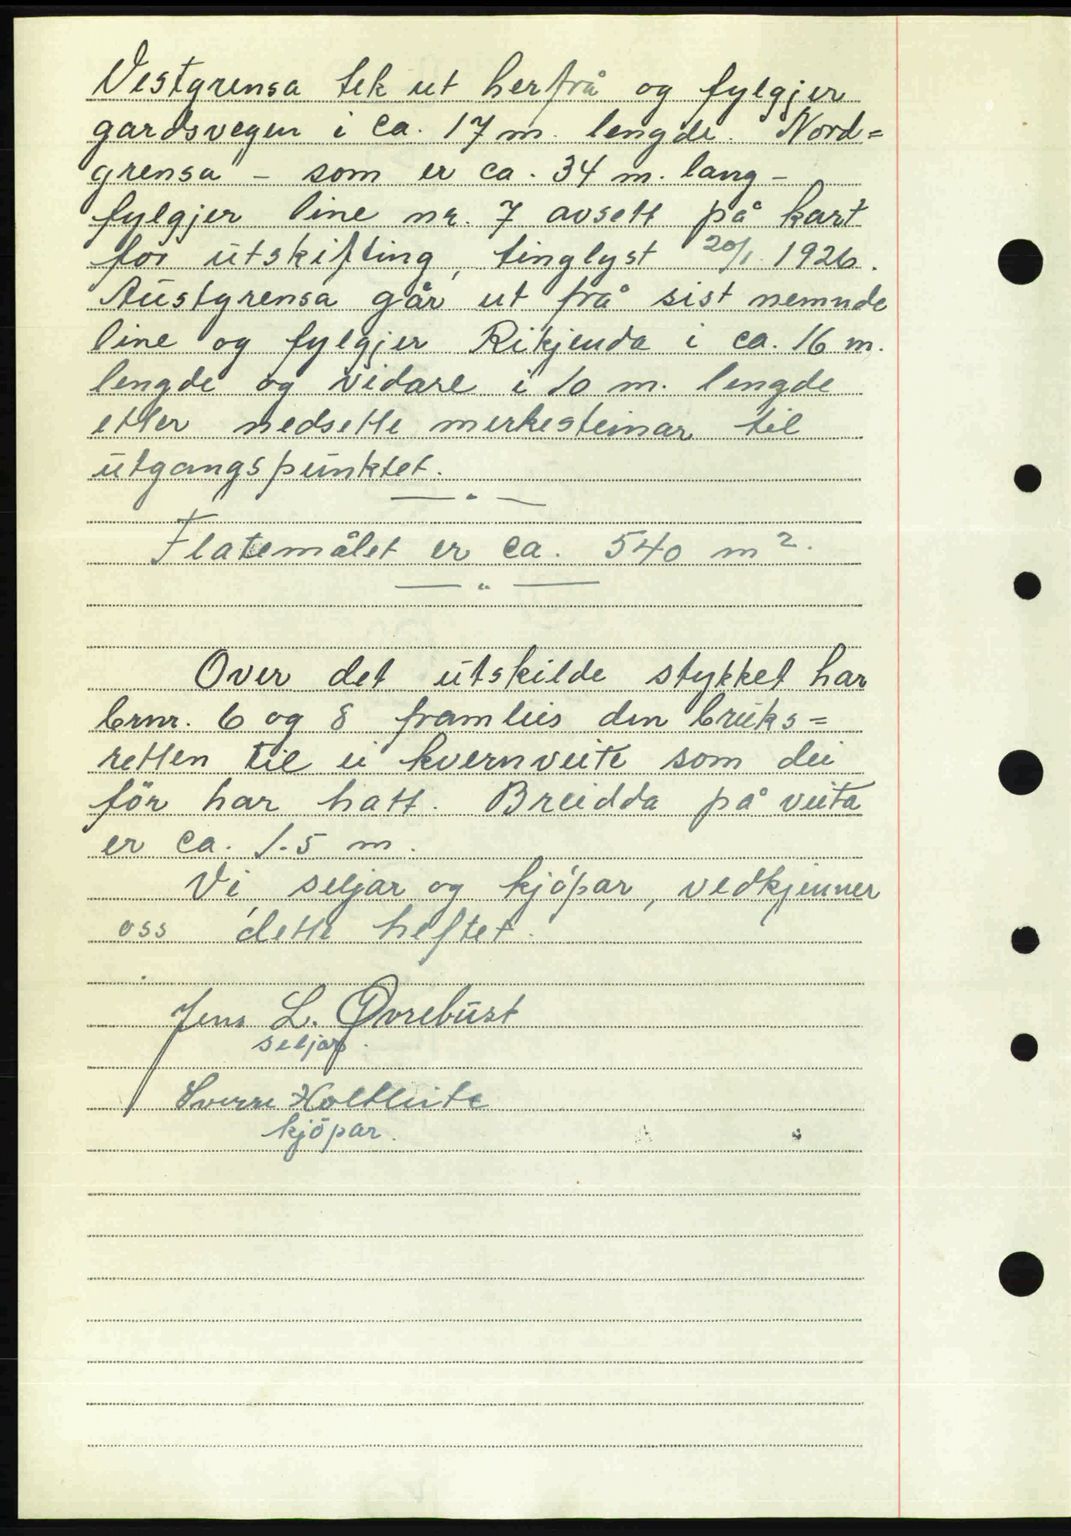 Vestgrensa tek ut herfrå og fylgjer
gardsvegen i ca. 17 m. lengde. Nord=
grensa – som er ca. 34 m. lang –
fylgjer line nr. 7 avsett på kart
for utskifting, tinglyst 20/1 1926.
Austgrensa går ut frå sist nemnde
line og fylgjer Rikjenda i ca. 16 m.
lengde og vidare i 10 m. lengde
etter nedsette merkesteinar til
utgangspunktet.
Flatemålet er ca. 540 m².
Over det utskilde stykket har
brnr. 6 og 8 framleis den bruks=
retten til ei kvernveite som dei
för har hatt. Breidda på veita
er ca. 1.5 m.
Vi, seljar og kjöpar, vedkjenner
oss dette heftet.
Jens L. Øvrebust
seljar.
Sverre Holtleite
kjöpar.